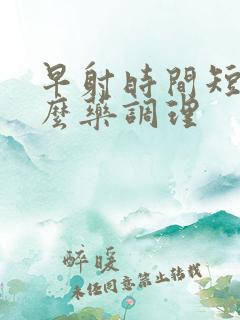 早射時間短
麼藥調理
醉暖
未經同意禁止转载